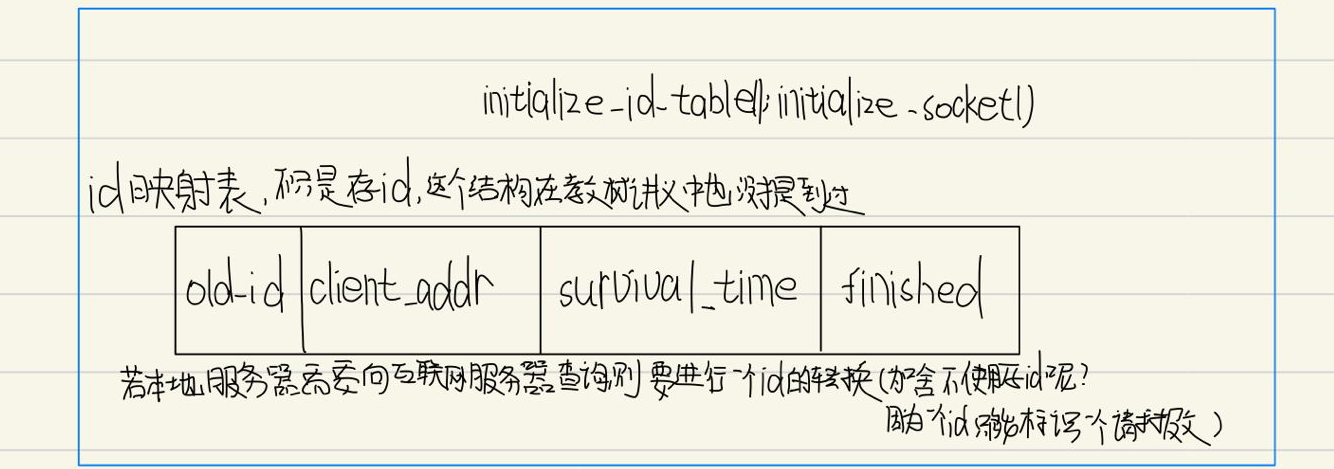 initialize_id_table();initialize_socket()
id映射表,不仅是存id,这个结构在教材讲义中也没提到过
old_id client_addr survival_time finished
若本地服务器需要向互联网服务器查询则要进行一个id的转换(为啥不使用原id呢?
因为一个id只能标识一个请求报文)